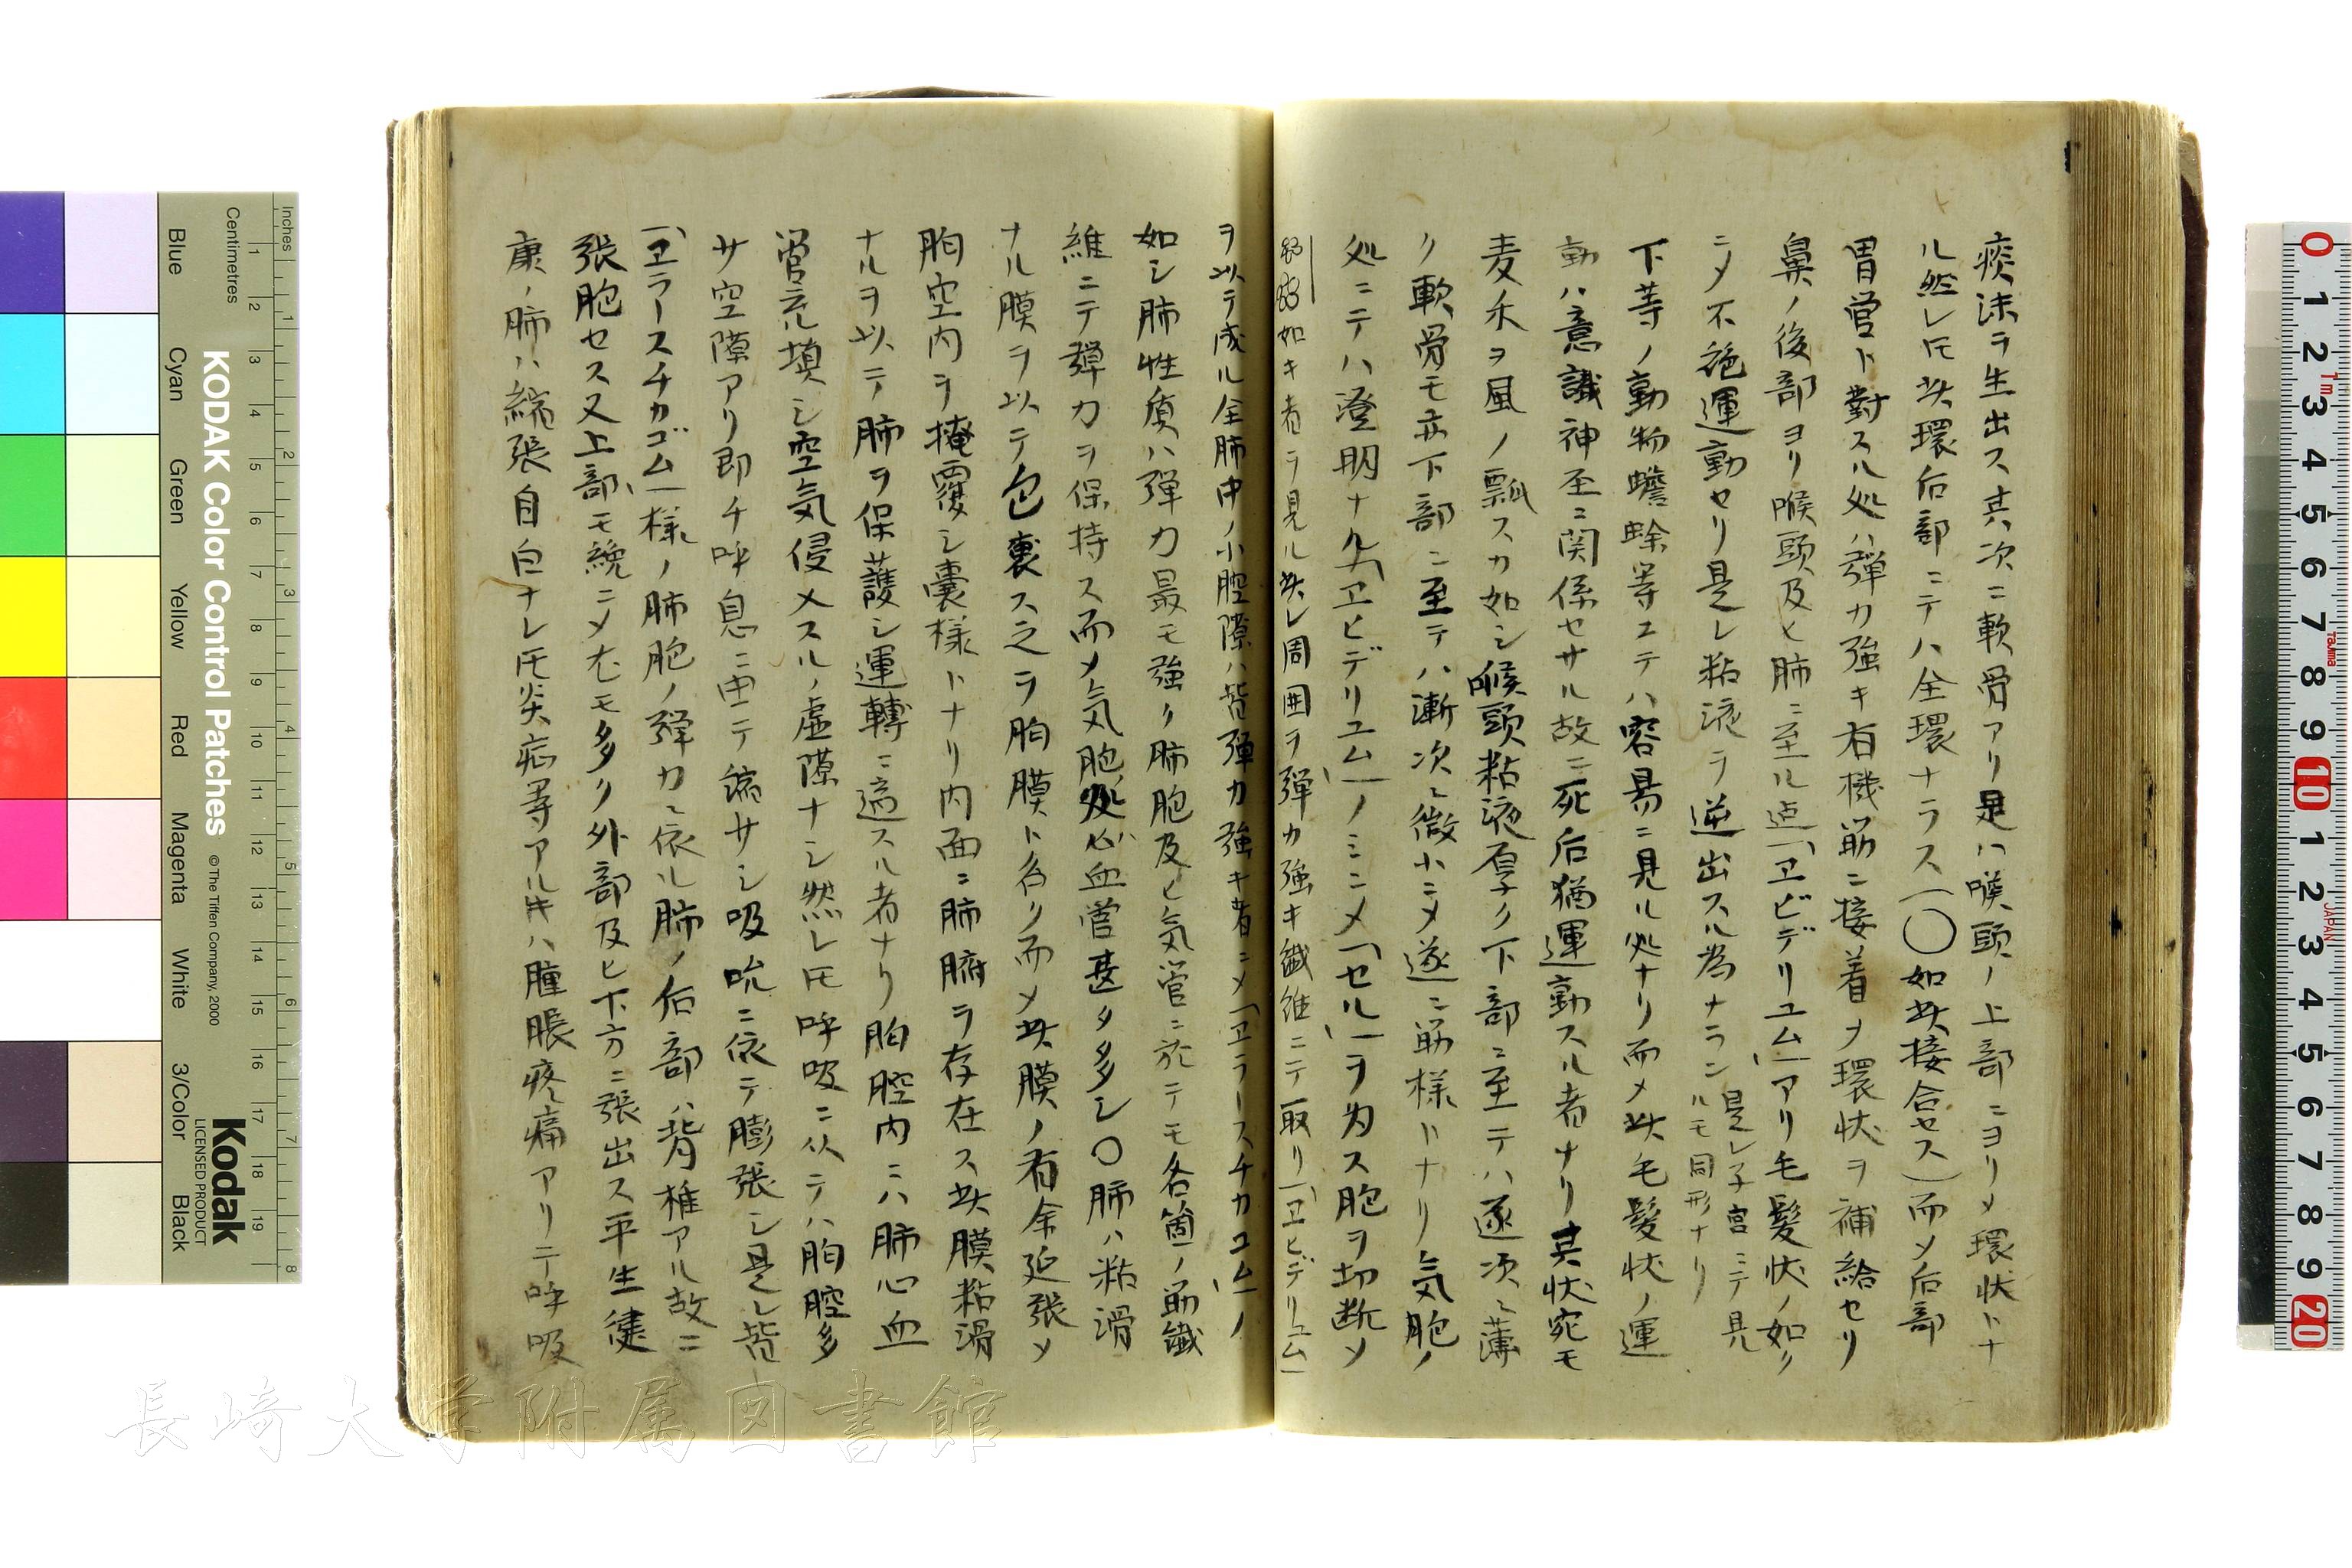 痰沫ヲ生出ス其次ニ軟骨アリ是ハ喉頭ノ上部ニヨリメ環状トナ
ル然レ𪜈其環后部ニテハ全環ナラス(〇如其接合セス)而メ后部
胃管ト對スル処ハ彈力強キ有機筋ニ接着メ環状ヲ補給セリ
鼻ノ後部ヨリ喉頭及ヒ肺ニ至ル迠「ヱピデリユム」アリ毛髪状ノ如ク
ニメ不絶運動セリ是レ粘液ヲ逆出スル為ナラン是レ子宮ニテ見ルモ同形ナリ
下等ノ動物蟾蜍等ニテハ容易ニ見ル処ナリ而メ其毛髪状ノ運
動ハ意識神圣ニ関係セサル故ニ死后猶運動スル者ナリ其状宛モ
麦禾ヲ風ノ飄スカ如シ喉頭粘液厚ク下部ニ至テハ逐次ニ薄
ク軟骨モ亦下部ニ至テハ漸次ニ微小ニメ遂ニ筋様トナリ気胞ノ
処ニテハ澄明ナル「ヱヒデリユム」ノミニメ「セル」ヲ为ス胞ヲ切断メ
如キ者ヲ見ル其レ周囲ヲ彈力強キ繊維ニテ取リ「ヱヒデリユム」
ヲ以テ成ル全肺中ノ小腔隙ハ皆彈力強キ者ニメ「ヱラースチカユム」ノ
如シ肺性質ハ彈力最モ強ク肺胞及ヒ気管ニ於テモ各箇ノ筋繊
維ニテ彈力ヲ保持ス而メ気胞処ハ血管甚タ多シ〇肺ハ粘滑
ナル膜ヲ以テ包裹ス之ヲ胸膜ト名ク而メ其膜ノ有余延張メ
胸空内ヲ掩覆シ嚢様トナリ内面ニ肺臓ヲ存在ス其膜粘滑
ナルヲ以テ肺ヲ保護シ運轉ニ適スル者ナリ胸腔内ニハ肺心血
管充填シ空気侵メスルノ虚隙ナシ然レ𪜈呼吸ニ从テハ胸腔多
サ空隙アリ即チ呼息ニ由テ縮サシ吸吮ニ依テ膨張シ是レ皆
「ヱラースチカゴム」様ノ肺胞ノ彈力ニ依ル肺ノ后部ハ背椎アル故ニ
張胞セス又上部モ繞ニメ尤モ多ク外部及ヒ下方ニ張出ス平生健
康ノ肺ハ縮張自白ナレ𪜈炎症等アル𪜈ハ腫脹疼痛アリテ呼吸
長崎大学附属図書館
Inches
Centimetres
KODAK Color Control Patches
© The Tiffen Company, 2000
Kodak
LICENSED PRODUCT
Blue
Cyan
Green
Yellow
Red
Magenta
White
3/Color
Black